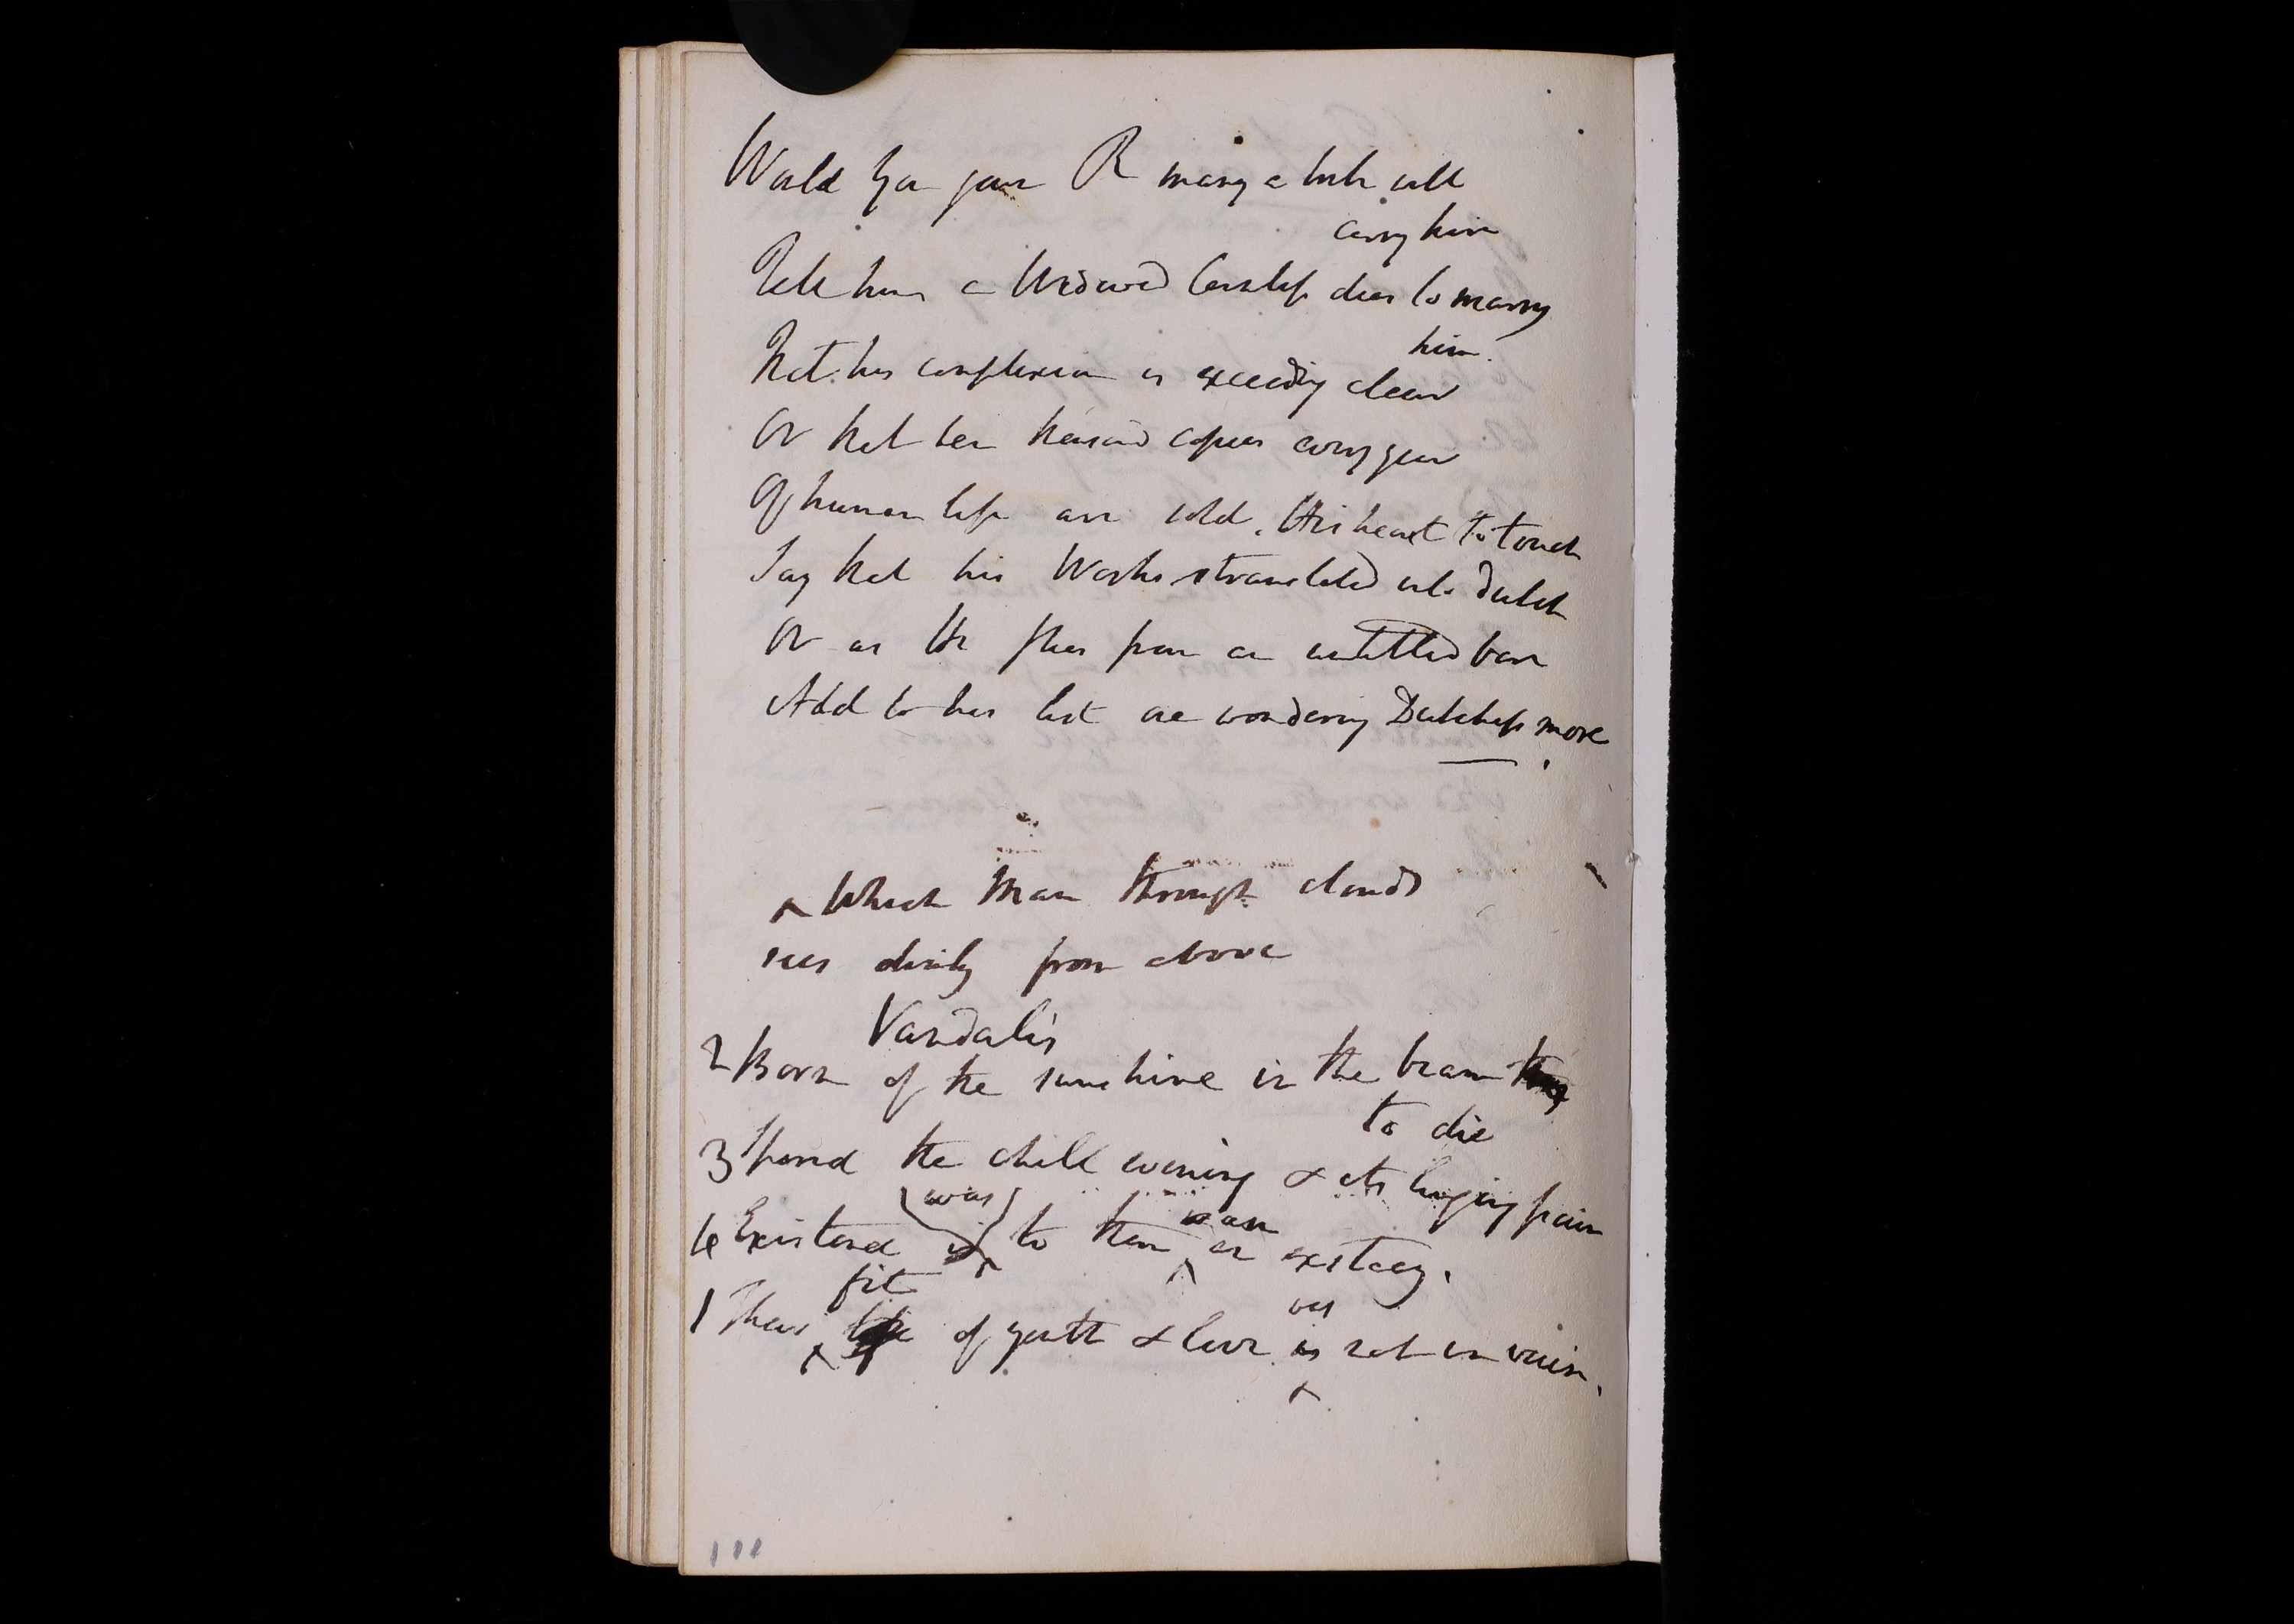 Would you your R marry a will
carry him
Tell him a Widowed Countess dies to marry
him.
That his complexion is exceeding clear
Or that ten thousand copies every year
Of human life are sold. His heart to touch
Say that his Works translated into dutch
Or as He flies from an untitled bore
Add to his list one wondering Dutchess more
^ Which Man through clouds
sees dimly from above
Vandalis
2 Born of the sunshine in the beam
to die
3 Spared the chill evening & its lingering pain
was
an
4 Existence is to them an extacy.
fit
was
1 Their life of youth & love is not in vain.
111